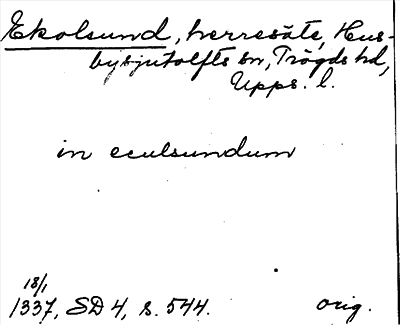 Ekolsund, herresäte, Hus-
bysjutolfts sn, Trögds hd,
Upps. l.
in eculsundum
18/1
1337, SD 4, s. 544. orig.